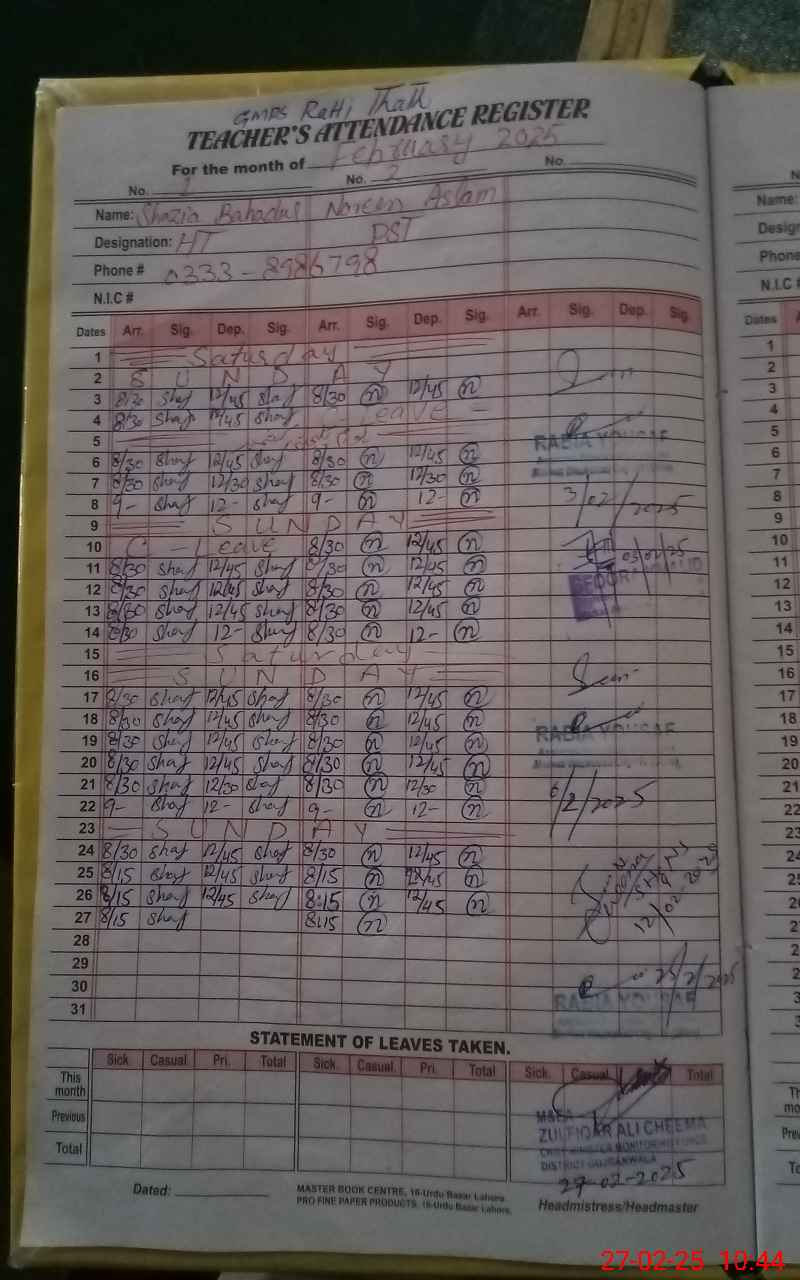 GMPS Ratti Thatt
TEACHER'S ATTENDANCE REGISTER
For the month of February 2025
No. 1 No. 2 No.
Name: Shazia Bahadur Noreen Aslam
Designation: HT PST
Phone # 0333-8986798
N.I.C #
Dates Arr. Sig. Dep. Sig. Arr. Sig. Dep. Sig. Arr. Sig. Dep. Sig.
1 Saturday
2 S U N D A Y
3 8/30 Shaf 12/45 Shaf 8/30 n 12/45 n
4 8/30 Shaf 12/45 Shaf Leave
5
RABIA YOUSAF
6 8/30 Shaf 12/45 Shaf 8/30 n 12/45 n
7 8/30 Shaf 12/30 Shaf 8/30 n 12/30 n
8 9- Shaf 12- Shaf 9- n 12- n 3/02/2025
9 S U N D A Y
10 C-Leave 8/30 n 12/45 n
11 8/30 Shaf 12/45 Shaf 8/30 n 12/45 n
12 8/30 Shaf 12/45 Shaf 8/30 n 12/45 n
13 8/30 Shaf 12/45 Shaf 8/30 n 12/45 n
14 8/30 Shaf 12- Shaf 8/30 n 12- n
15 Saturday
16 S U N D A Y
17 8/30 Shaf 12/45 Shaf 8/30 n 12/45 n
18 8/30 Shaf 12/45 Shaf 8/30 n 12/45 n
RABIA YOUSAF
19 8/30 Shaf 12/45 Shaf 8/30 n 12/45 n
20 8/30 Shaf 12/45 Shaf 8/30 n 12/45 n
21 8/30 Shaf 12/30 Shaf 8/30 n 12/30 n
6/2/2025
22 9- Shaf 12- Shaf 9- n 12- n
23 S U N D A Y
24 8/30 Shaf 12/45 Shaf 8/30 n 12/45 n
25 8/15 Shaf 12/45 Shaf 8/15 n 12/45 n
26 8/15 Shaf 12/45 Shaf 8:15 n 12/45 n
27 8/15 Shaf 8:15 n
28
29 25/2/2025
30 RABIA YOUSAF
31
STATEMENT OF LEAVES TAKEN.
Sick. Casual. Pri. Total Sick. Casual. Pri. Total Sick. Casual. Total
This month
Previous
Total
M&EA
ZULFIQAR ALI CHEEMA
CHIEF MINISTER MONITORING FORCE
DISTRICT GUJRANWALA
27-02-2025
Dated:
MASTER BOOK CENTRE, 16-Urdu Bazar Lahore.
PRO FINE PAPER PRODUCTS, 16-Urdu Bazar Lahore.
Headmistress/Headmaster
27-02-25 10:44